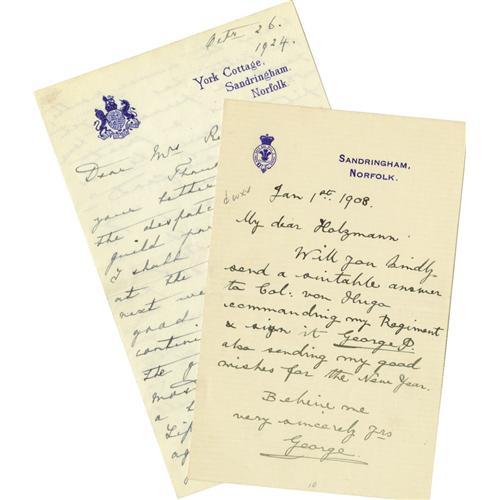 Octr 26.
1924.
York Cottage,
Sandringham,
Norfolk.
Dear Mrs R
Than
your letter
the despatc
guild par
I shall
at the
next we
good
contin
the g
mos
a l
Lip
ag
Sandringham,
Norfolk.
Jan 1st 1908.
My dear Holzmann
Will you kindly
send a suitable answer
to Col: von Hugo
commanding my Regiment
& sign it George P.
also sending my good
wishes for the New Year.
Believe me
very sincerely yrs
George.